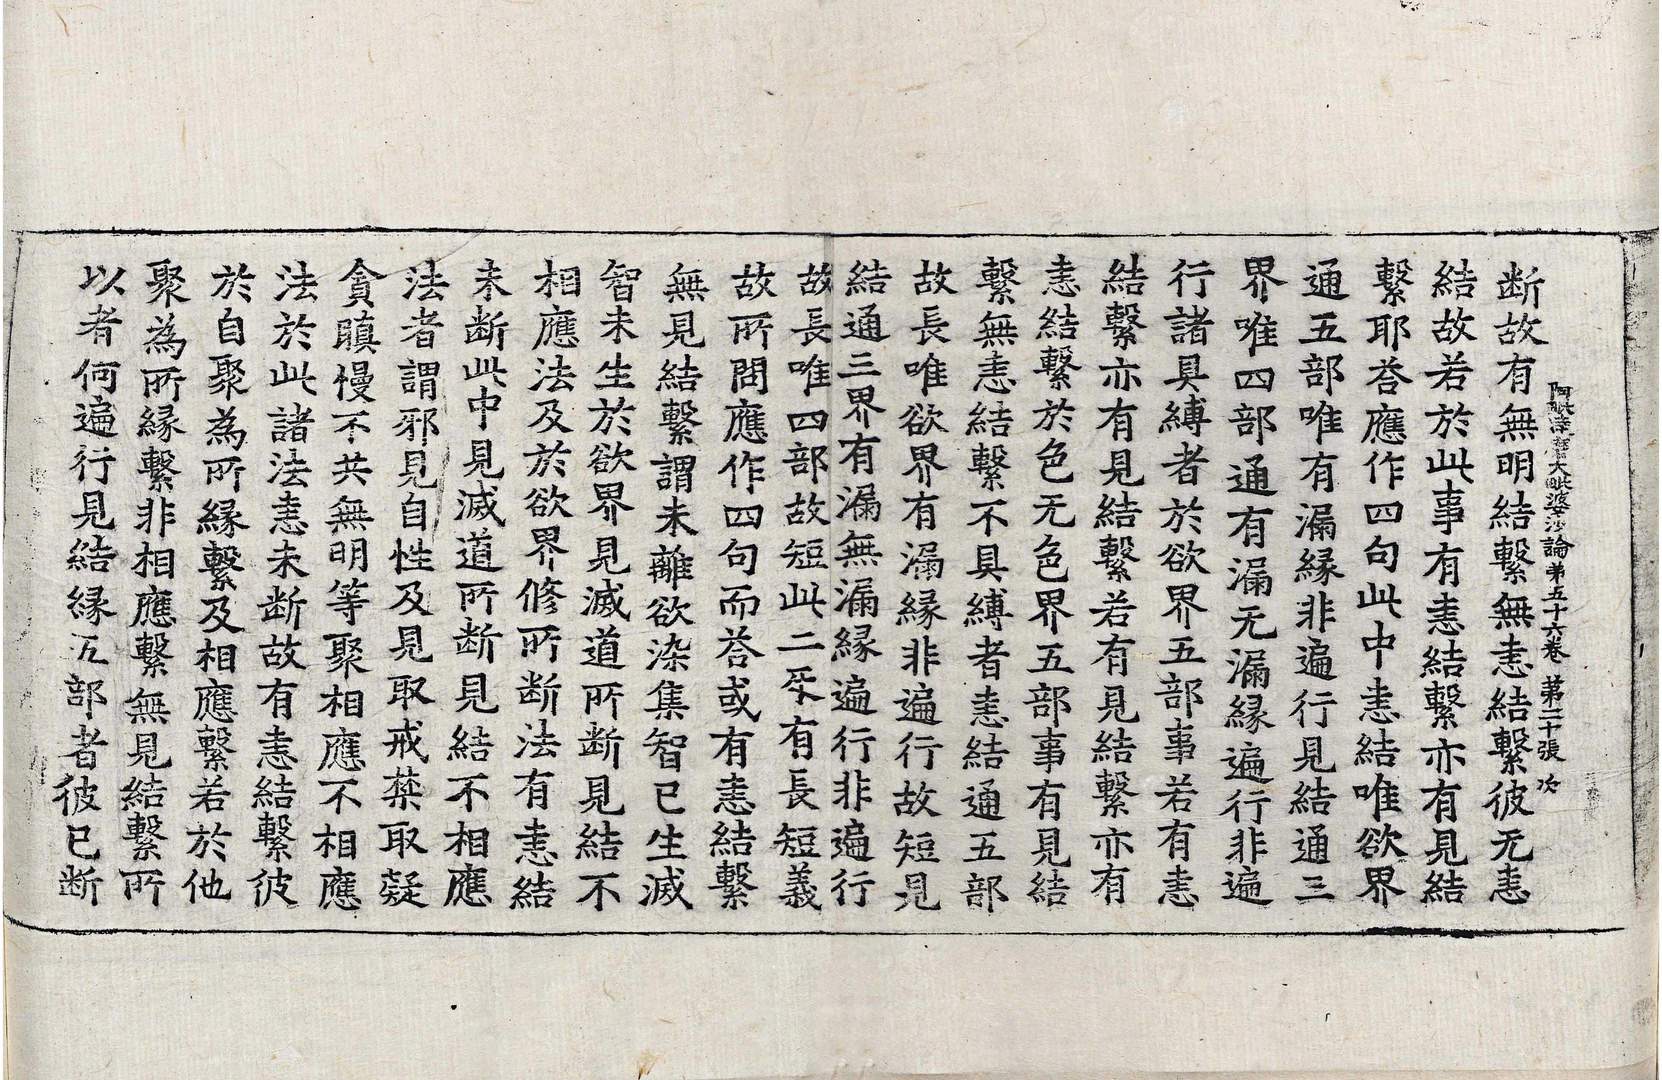 阿毗達磨大毗婆沙論第五十六卷 第二十張 次
断故有無明結繫無恚結繫彼无恚
結故若於此事有恚結繫亦有見結
繫耶荅應作四句此中恚結唯欲界
通五部唯有漏縁非遍行見結通三
界唯四部通有漏无漏縁遍行非遍
行諸具縛者於欲界五部事若有恚
結繫亦有見結繫若有見結繫亦有
恚結繫於色无色界五部事有見結
繫無恚結繫不具縛者恚結通五部
故長唯欲界有漏縁非遍行故短見
結通三界有漏無漏縁遍行非遍行
故長唯四部故短此二互有長短義
故所問應作四句而荅或有恚結繫
無見結繫謂未離欲染集智已生滅
智未生於欲界見滅道所断見結不
相應法及於欲界修所断法有恚結
未断此中見滅道所断見結不相應
法者謂邪見自性及見取戒禁取疑
貪瞋慢不共無明等聚相應不相應
法於此諸法恚未断故有恚結繫彼
於自聚為所縁繫及相應繫若於他
聚為所縁繫非相應繫無見結繫所
以者何遍行見結縁五部者彼已断